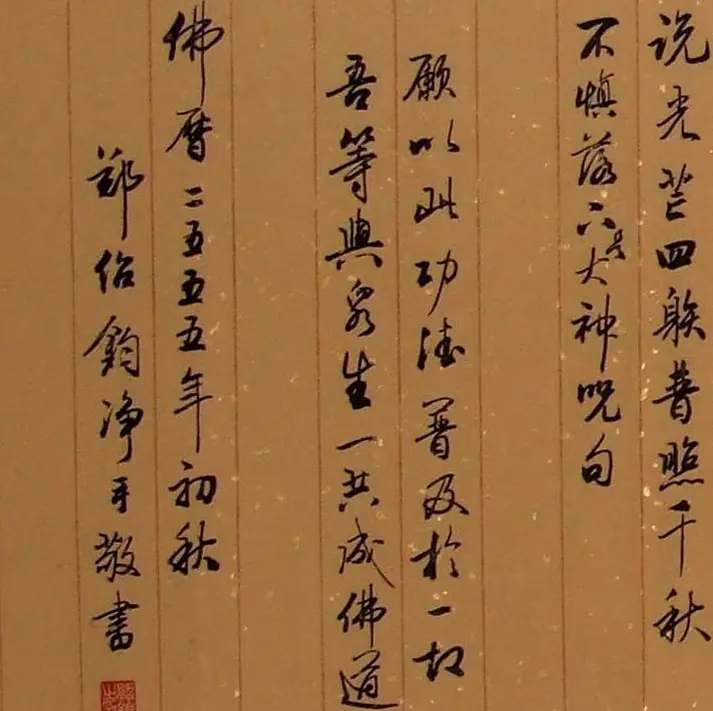 说光芒四躲普照千秋
不慎落下是大神咒句
願以此功德普及於一切
吾等與眾生一共成佛道
佛曆二五五五年初秋
鄭佁鈞净手敬書